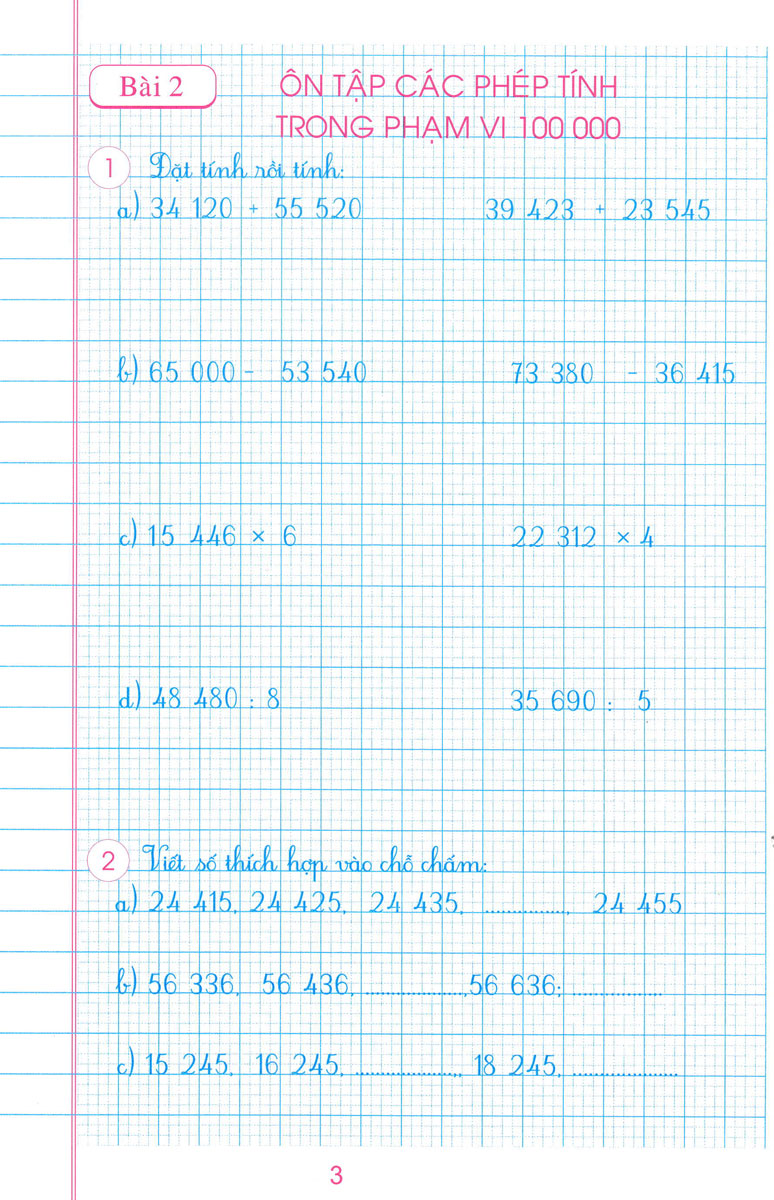 Bài 2
ÔN TẬP CÁC PHÉP TÍNH
TRONG PHẠM VI 100 000
1 Đặt tính rồi tính:
a) 34 120 + 55 520 39 423 + 23 545
b) 65 000 - 53 540 73 380 - 36 415
c) 15 446 × 6 22 312 × 4
d) 48 480 : 8 35 690 : 5
2 Viết số thích hợp vào chỗ chấm:
a) 24 415, 24 425, 24 435, ..............., 24 455
b) 56 336, 56 436, ...................,56 636; .................
c) 15 245, 16 245, ..................,, 18 245, ....................
3